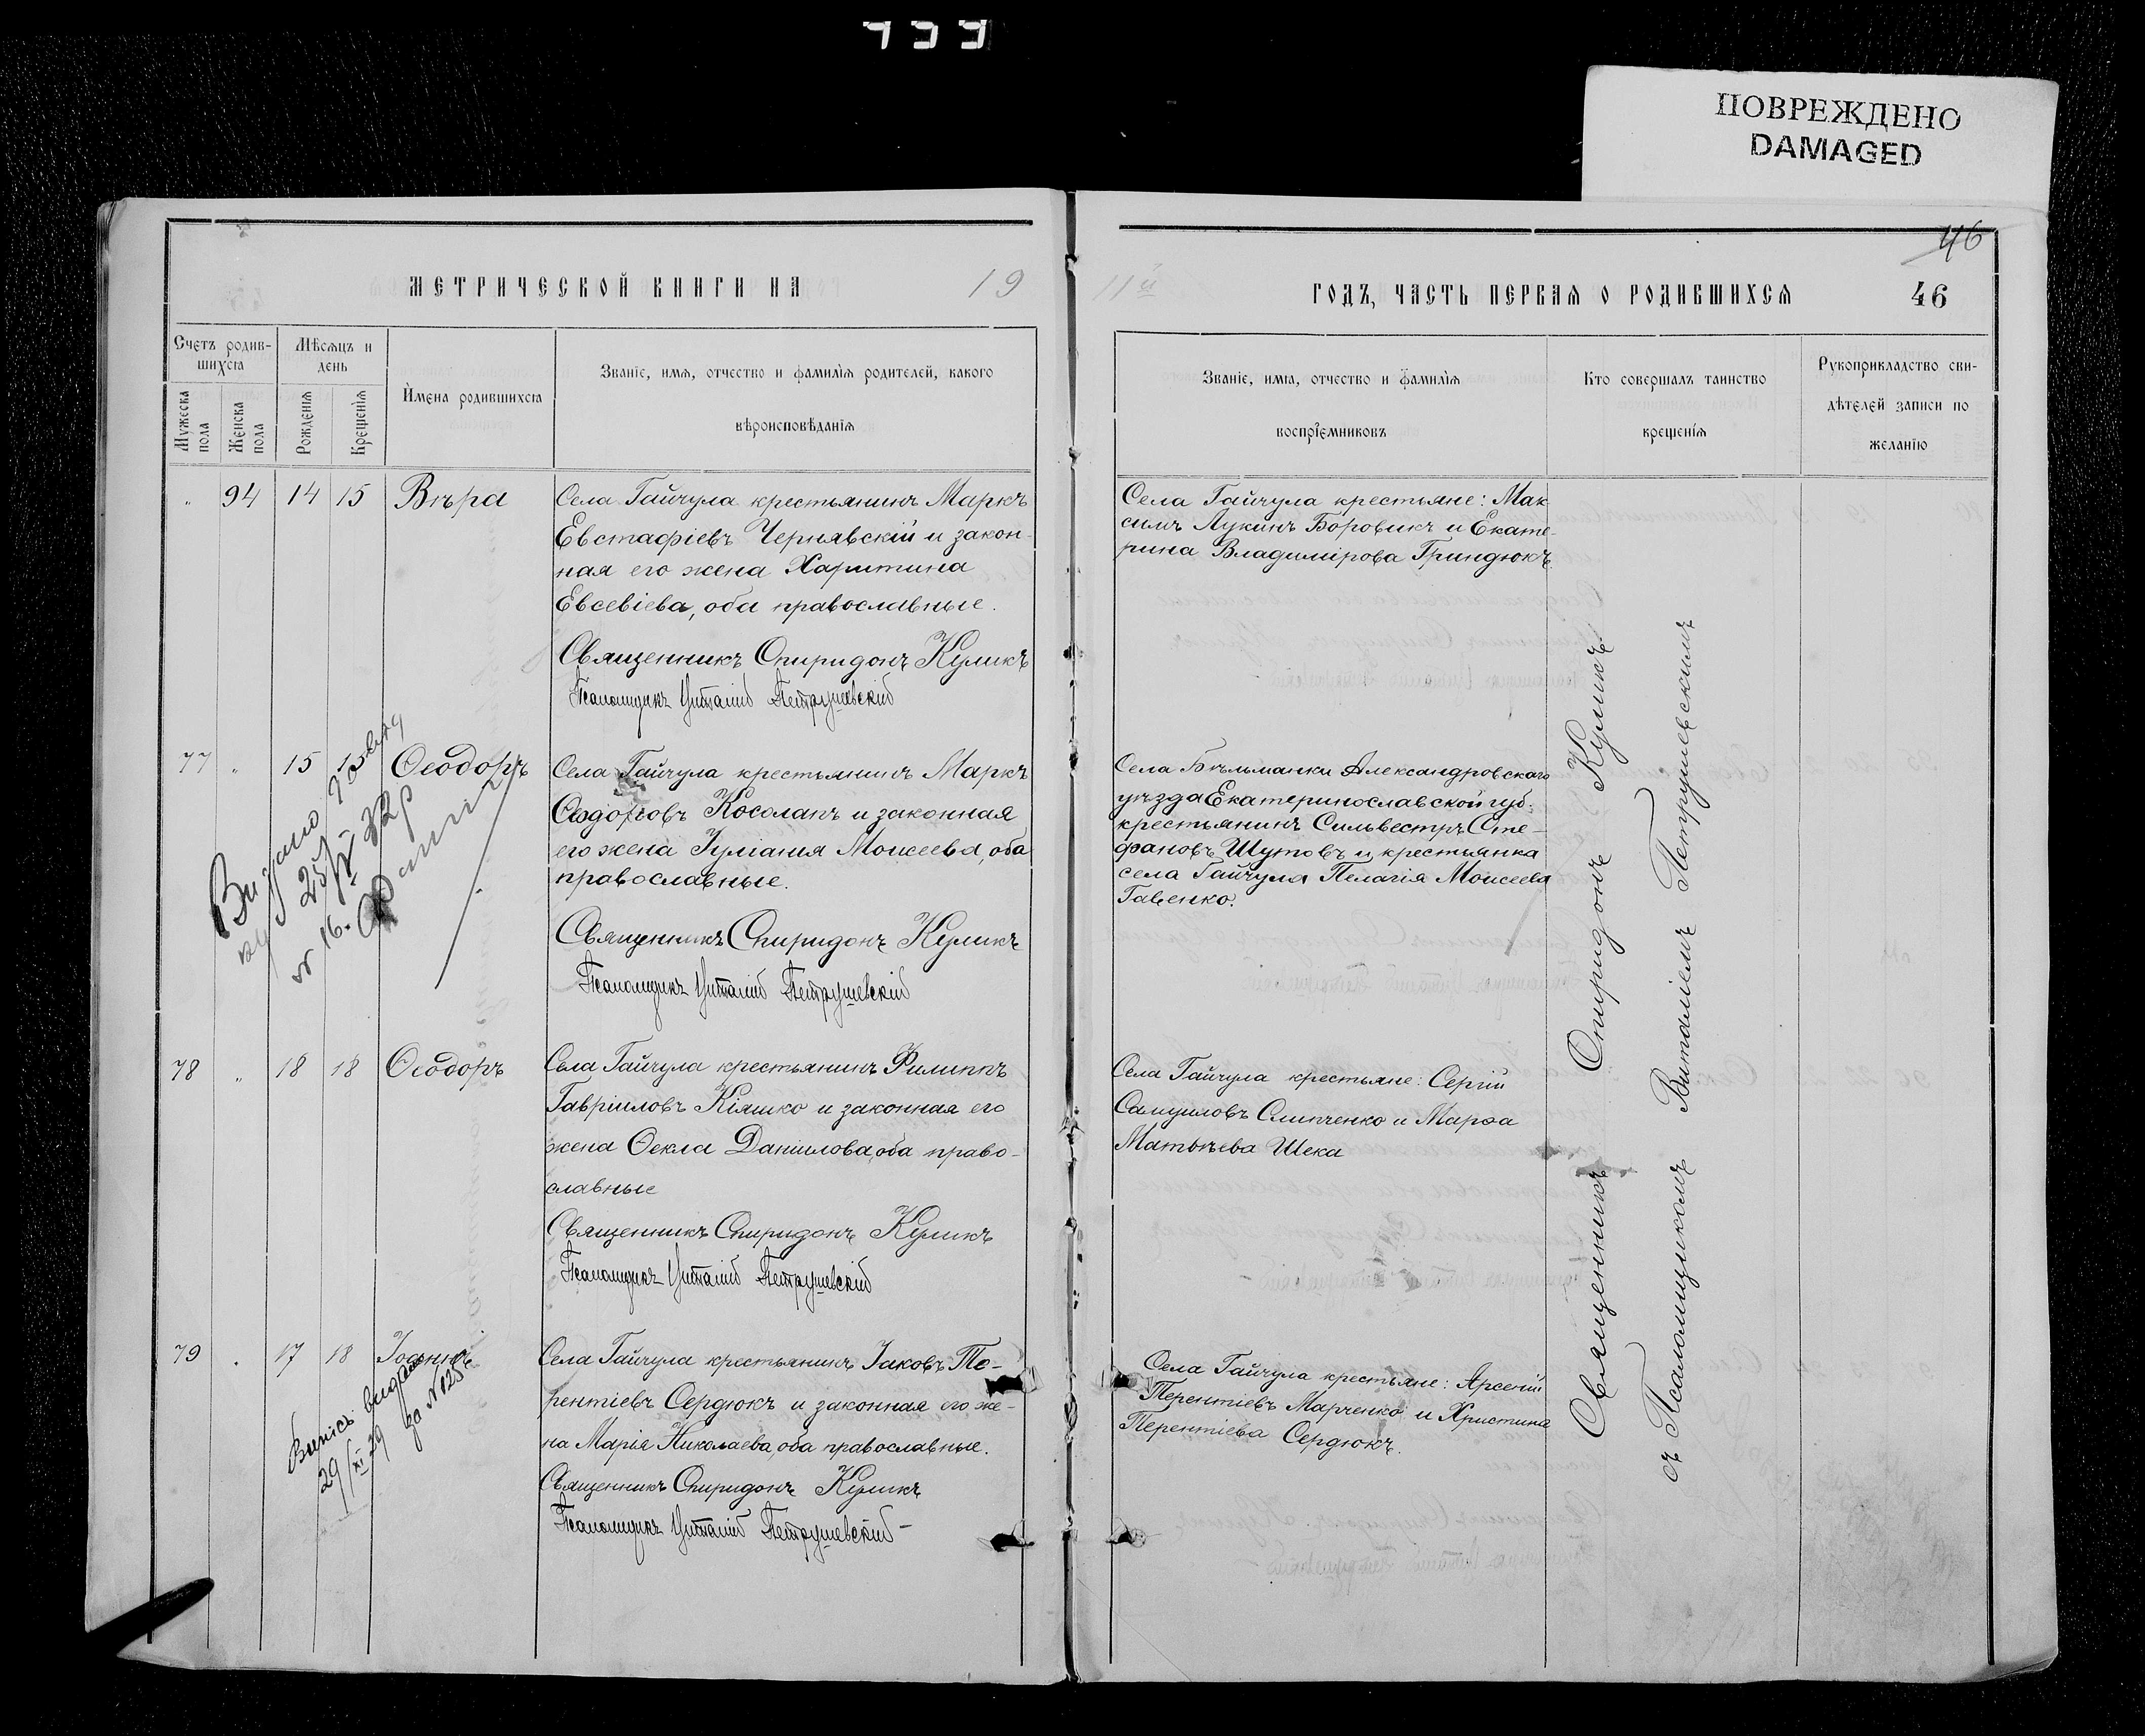 ПОВРЕЖДЕНО
DAMAGED
46
МЕТРИЧЕСКОЙ КНИГИ НА 19
11й ГОДЪ, ЧАСТЬ ПЕРВАЯ О РОДИВШИХСЯ 46
Счетъ родив-
шихся
Мужеска
пола
Женска
пола
Мѣсяцъ и
день
Рожденія
Крещенія
Имена родившихся
Званіе, имя, отчество и фамилія родителей, какого
вѣроисповѣданія
Званіе, имя, отчество и фамилія
воспріемниковъ
Кто совершалъ таинство
крещенія
Рукоприкладство сви-
дѣтелей записи по
желанію
" 94 14 15 Вѣра
Села Гайчула крестьянинъ Маркъ
Евстафіевъ Чернявскій и закон-
ная его жена Харитина
Евсевіева, оба православные.
Священникъ Спиридонъ Куликъ
Псаломщикъ Виталій Петрушевскій
Села Гайчула крестьяне: Мак-
симъ Лукинъ Боровикъ и Екате-
рина Владимірова Гриндюкъ.
77 " 15 15 Ѳеодоръ
Видано
25
№ 16.
Села Гайчула крестьянинъ Маркъ
Ѳеодоровъ Косолапъ и законная
его жена Іуліанія Моисеева, оба
православные.
Священникъ Спиридонъ Куликъ
Псаломщикъ Виталій Петрушевскій
Села Бѣльманки Александровскаго
уѣзда Екатеринославской губ.
крестьянинъ Сильвестръ Сте-
фановъ Шутовъ и крестьянка
села Гайчула Пелагія Моисеева
Гавенко.
78 " 18 18 Ѳеодоръ
Села Гайчула крестьянинъ Филиппъ
Гавріиловъ Кіяшко и законная его
жена Ѳекла Даніилова, оба право-
славные
Священникъ Спиридонъ Куликъ
Псаломщикъ Виталій Петрушевскій
Села Гайчула крестьяне: Сергій
Самуиловъ Слипченко и Марѳа
Матѳѣева Шека
79 " 17 18 Іоаннъ
Виписъ видано
29/XI 29 за № 125
Села Гайчула крестьянинъ Іаковъ Те-
рентіевъ Сердюкъ и законная его же-
на Марія Николаева, оба православные.
Священникъ Спиридонъ Куликъ
Псаломщикъ Виталій Петрушевскій
Села Гайчула крестьяне: Арсеній
Терентіевъ Марченко и Христина
Терентіева Сердюкъ.
Священникъ Спиридонъ Куликъ
съ Псаломщикомъ Виталіемъ Петрушевскимъ